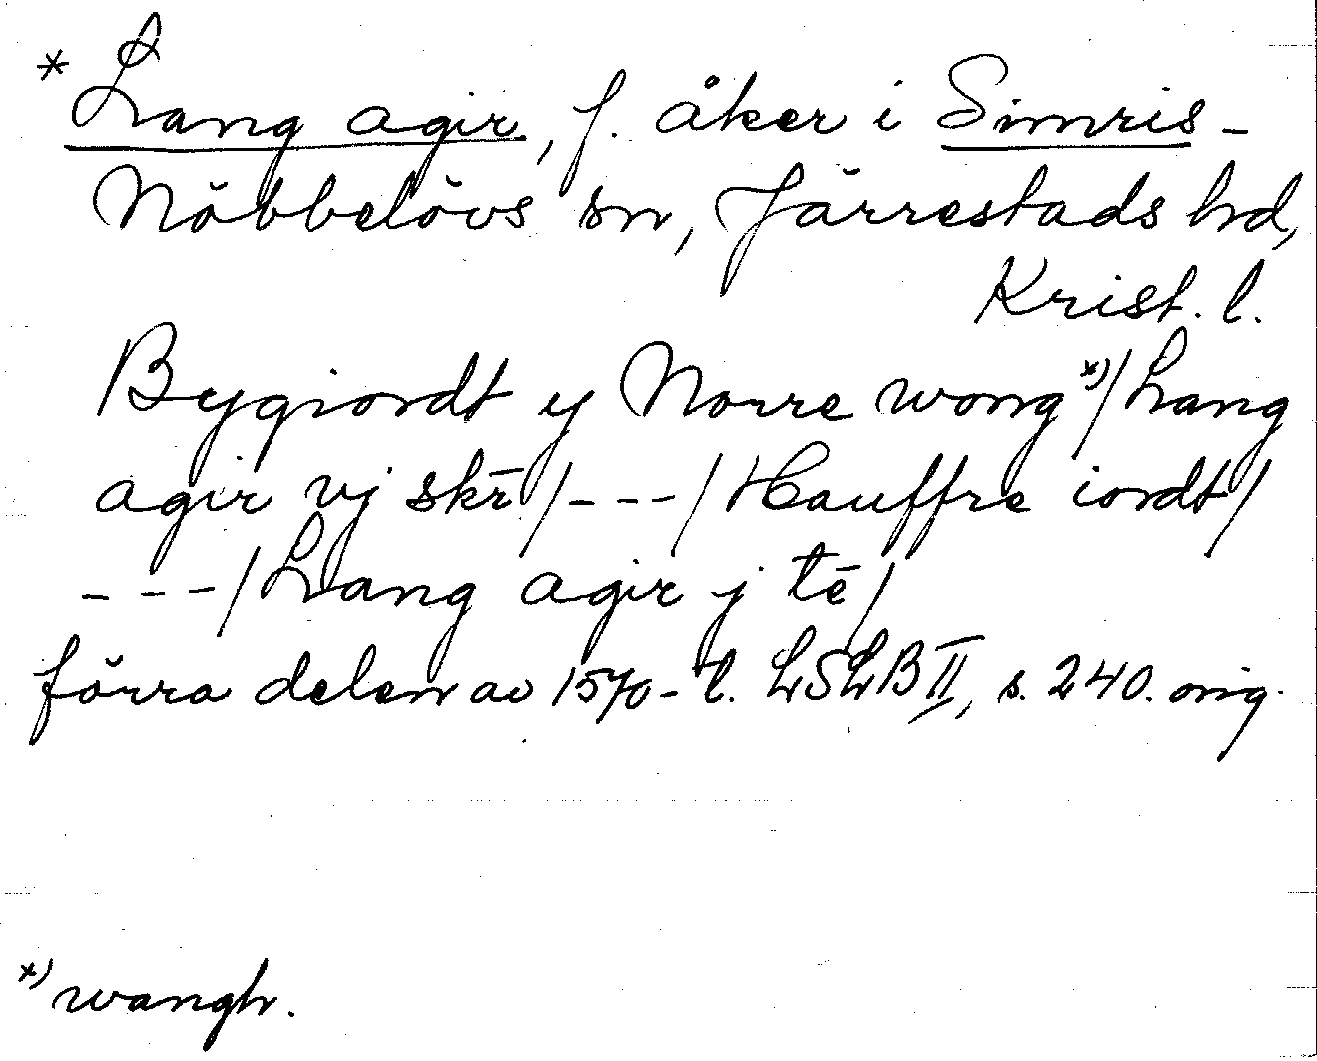 * Lang agir, f. åker i Simris-
Nöbbelövs sn, Järrestads hd,
Krist. l.
Bygiordt y Norre wong x)/Lang
agir vj skr̄/---/Hauffre iordt/
---/Lang agir j tē/
förra delen av 1570-t. LSLB II, s. 240. orig.
x) wangh.